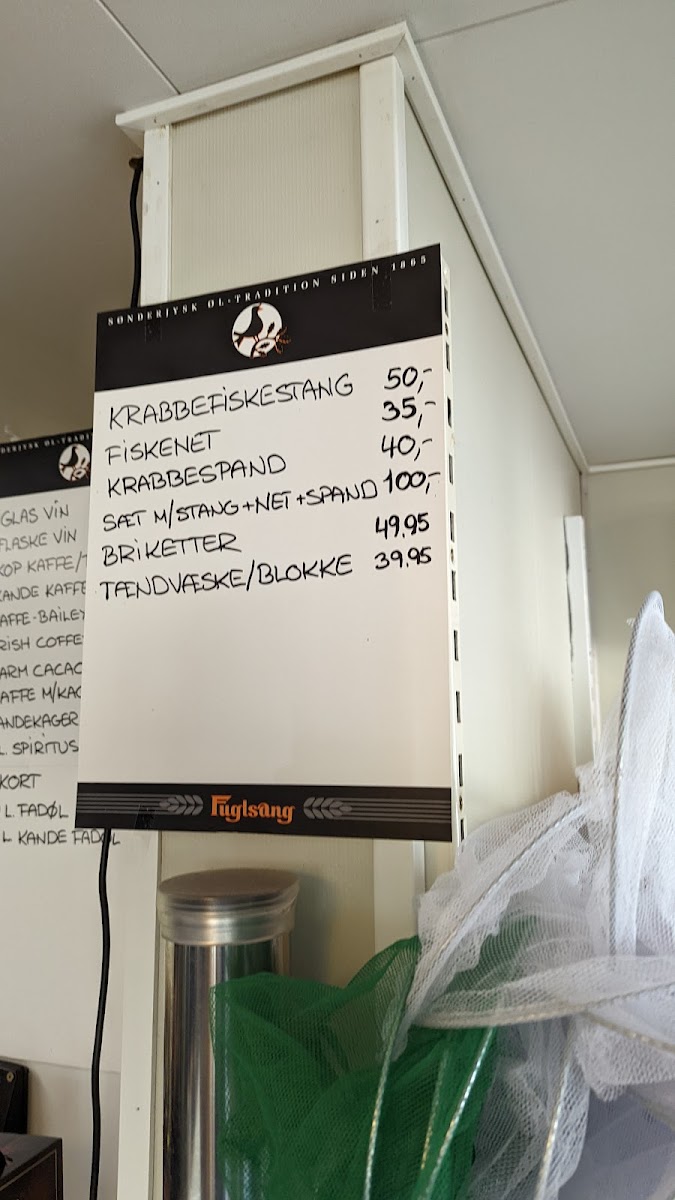 SØNDERJYSK ØL-TRADITION SIDEN 1865
KRABBEFISKESTANG 50,-
FISKENET 35,-
KRABBESPAND 40,-
SÆT M/STANG+NET+SPAND 100,-
BRIKETTER 49.95
TÆNDVÆSKE/BLOKKE 39.95
Fuglsang
GLAS VIN
FLASKE VIN
KOP KAFFE/
KANDE KAFFE
KAFFE-BAILEY
IRISH COFFE
VARM CACAO
KAFFE M/KA
PANDEKAGER
SPIRITUS
KORT
L. FADØL
L KANDE FADØL